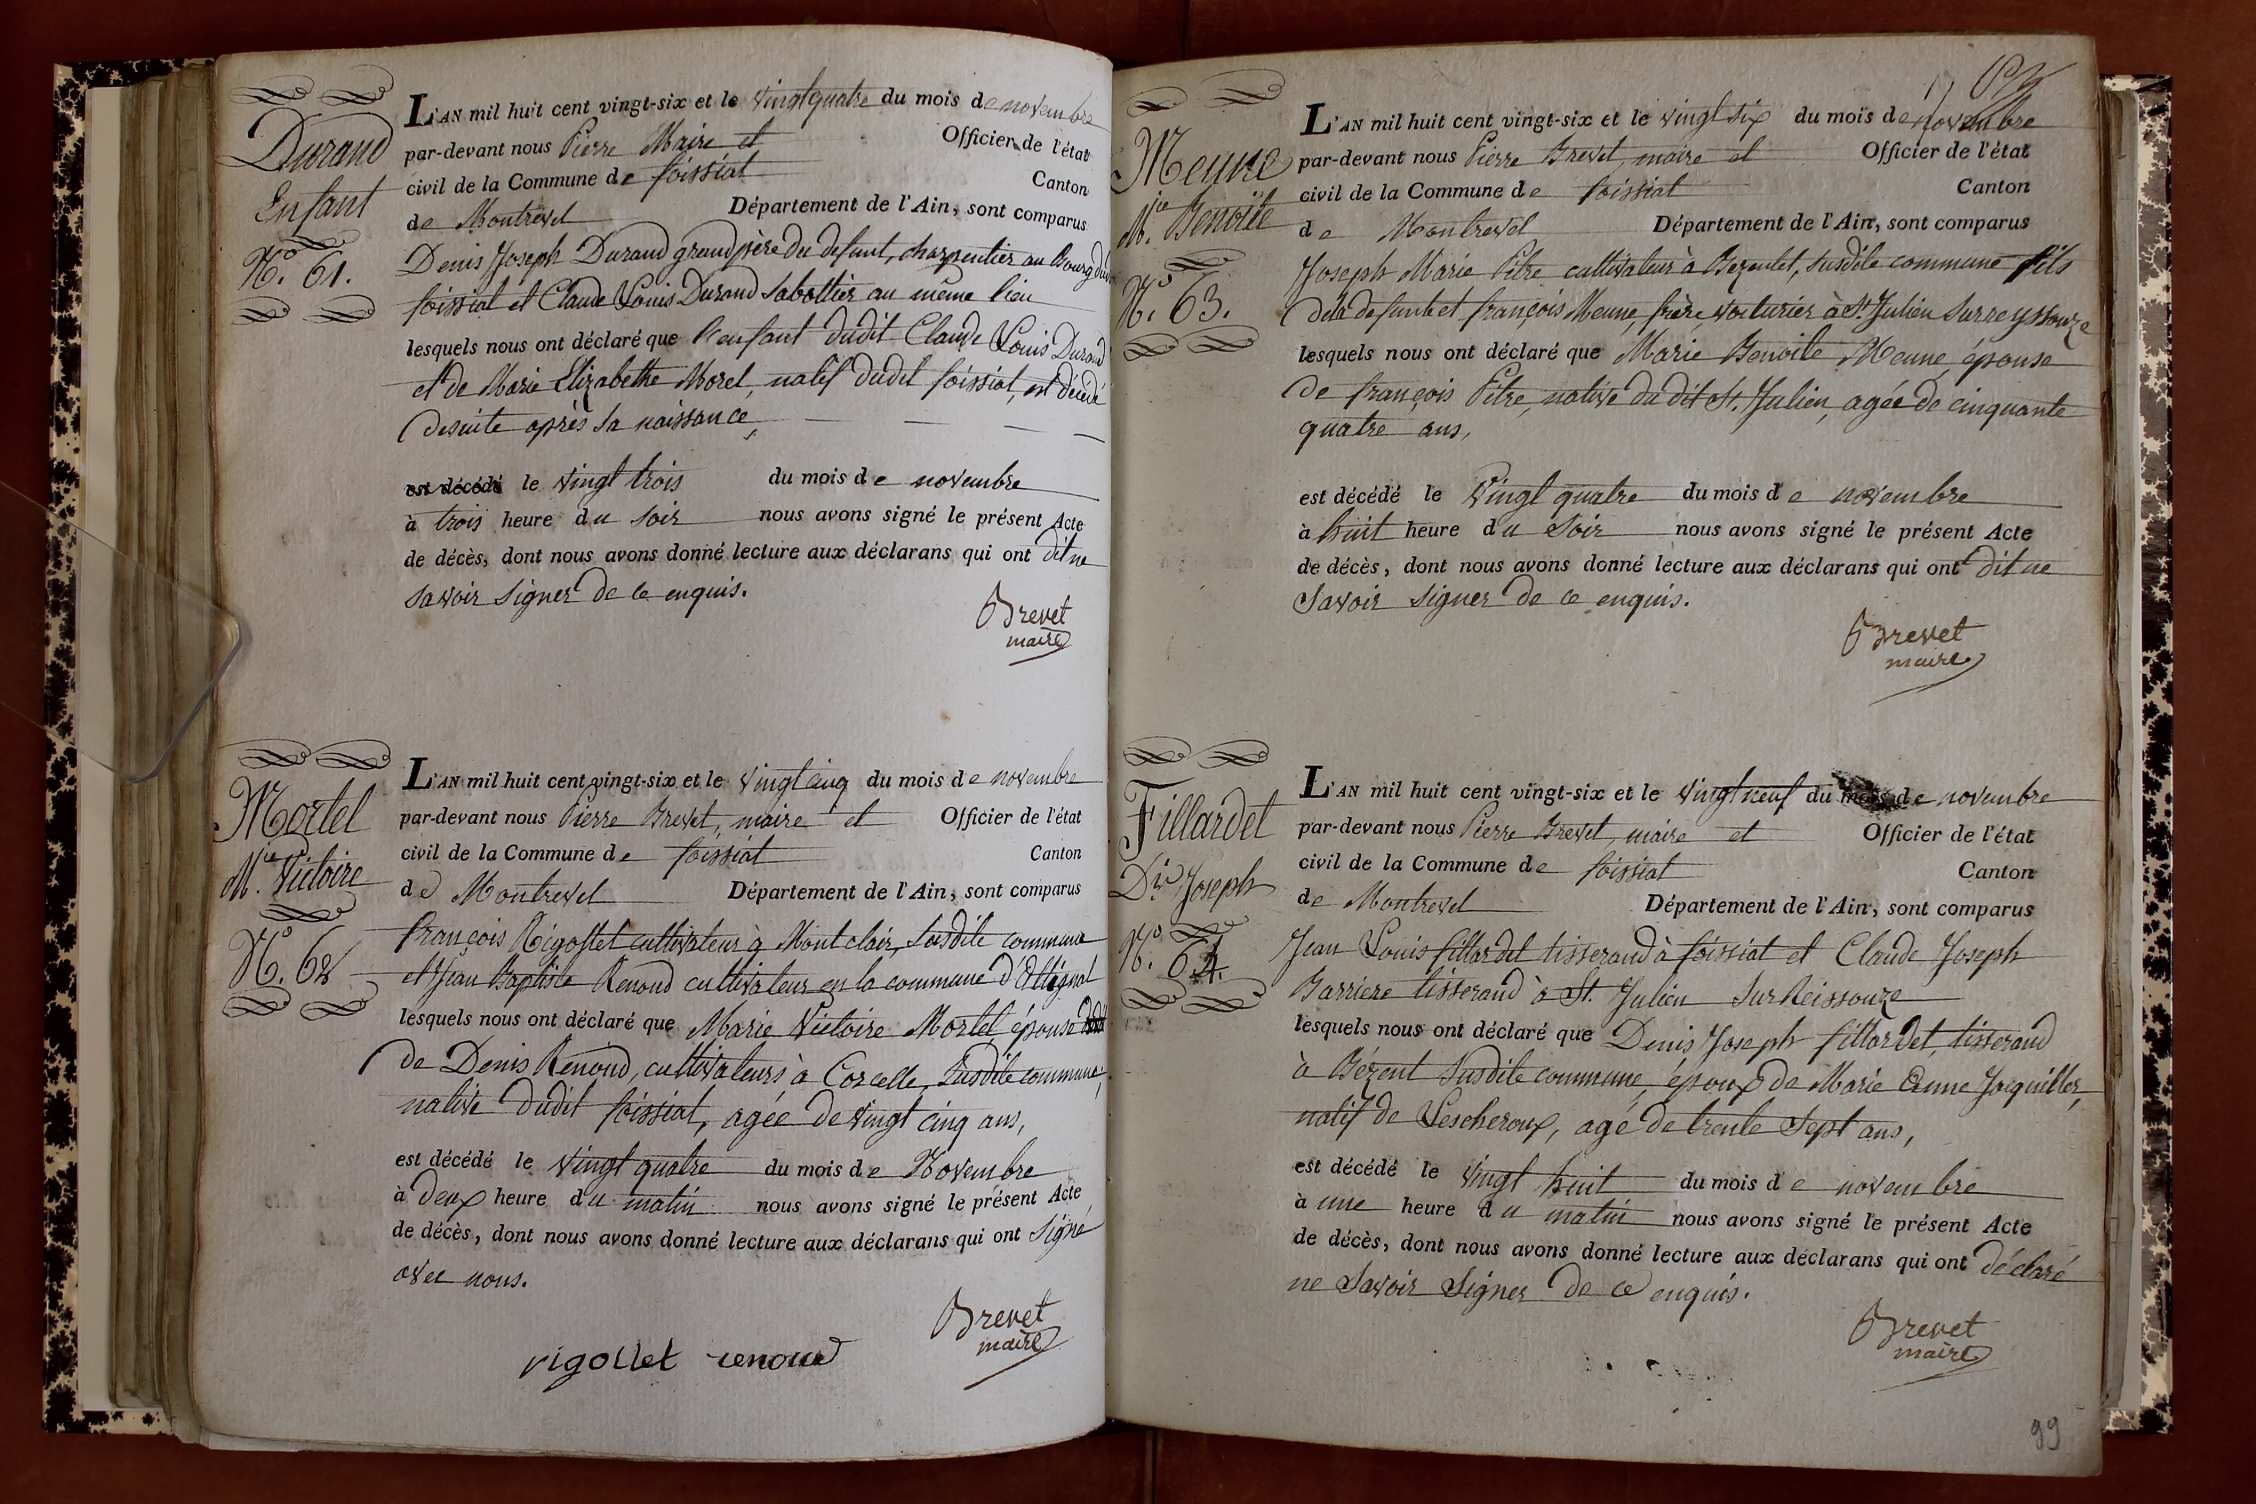 Durand
Enfant
N.º 61.
L'AN mil huit cent vingt-six et le vingt quatre du mois de novembre
par-devant nous Pierre Maire et Officier de l'état
civil de la Commune de foissiat Canton
de Montrevel Département de l'Ain, sont comparus
Denis Joseph Durand grand père du defunt, charpentier au Bourg dud.
foissiat et Claude Louis Durand Sabottier au même lieu
lesquels nous ont déclaré que l'enfant dudit Claude Louis Durand
et de Marie Elizabethe Morel, natif dudit foissiat, est décédé
desuite après sa naissance,
est décédé le vingt trois du mois de novembre
à trois heure du soir nous avons signé le présent Acte
de décès, dont nous avons donné lecture aux déclarans qui ont dit ne
savoir signer de ce enquis.
Brevet
maire
Mortel
M.ie Victoire
N.º 62
L'AN mil huit cent vingt-six et le vingt cinq du mois de novembre
par-devant nous Pierre Brevet, maire et Officier de l'état
civil de la Commune de foissiat Canton
de Montrevel Département de l'Ain, sont comparus
françois Rigollet cultivateur à Montclair, susdite commune
et Jean Baptiste Renoud cultivateur en la commune d'Attignat
lesquels nous ont déclaré que Marie Victoire Mortel épouse
de Denis Renoud, cultivateurs à Corcelle, susdite commune,
native dudit foissiat, agée de vingt cinq ans,
est décédé le vingt quatre du mois de Novembre
à deux heure du matin nous avons signé le présent Acte
de décès, dont nous avons donné lecture aux déclarans qui ont signé
avec nous.
Brevet
maire
rigollet renoud
Meune
M.ie Benoite
N.º 63.
L'AN mil huit cent vingt-six et le vingt six du mois de novembre
par-devant nous Pierre Brevet, maire et Officier de l'état
civil de la Commune de foissiat Canton
de Montrevel Département de l'Ain, sont comparus
Joseph Marie Pitre cultivateur à Bezentet, susdite commune fils
dela defunte et françois Meune, frère, voiturier à St. Julien sur reyssouze
lesquels nous ont déclaré que Marie Benoite Meune, épouse
de françois Pitre, native du dit St. Julien, agée de cinquante
quatre ans,
est décédé le vingt quatre du mois de novembre
à huit heure du soir nous avons signé le présent Acte
de décès, dont nous avons donné lecture aux déclarans qui ont dit ne
savoir signer de ce enquis.
Brevet
maire
Fillardet
D.is Joseph
N.º 64.
L'AN mil huit cent vingt-six et le vingt neuf du mois de novembre
par-devant nous Pierre Brevet, maire et Officier de l'état
civil de la Commune de foissiat Canton
de Montrevel Département de l'Ain, sont comparus
Jean Louis fillardet tisserand à foissiat et Claude Joseph
Barriere tisserand à St. Julien sur Reissouze
lesquels nous ont déclaré que Denis Joseph fillardet, tisserand
à Bézent susdite commune, époux de Marie Anne Jacquiller,
natif de Lescheroux, agé de trente sept ans,
est décédé le vingt huit du mois de novembre
à une heure du matin nous avons signé le présent Acte
de décès, dont nous avons donné lecture aux déclarans qui ont déclaré
ne savoir signer de ce enquis.
Brevet
maire
99